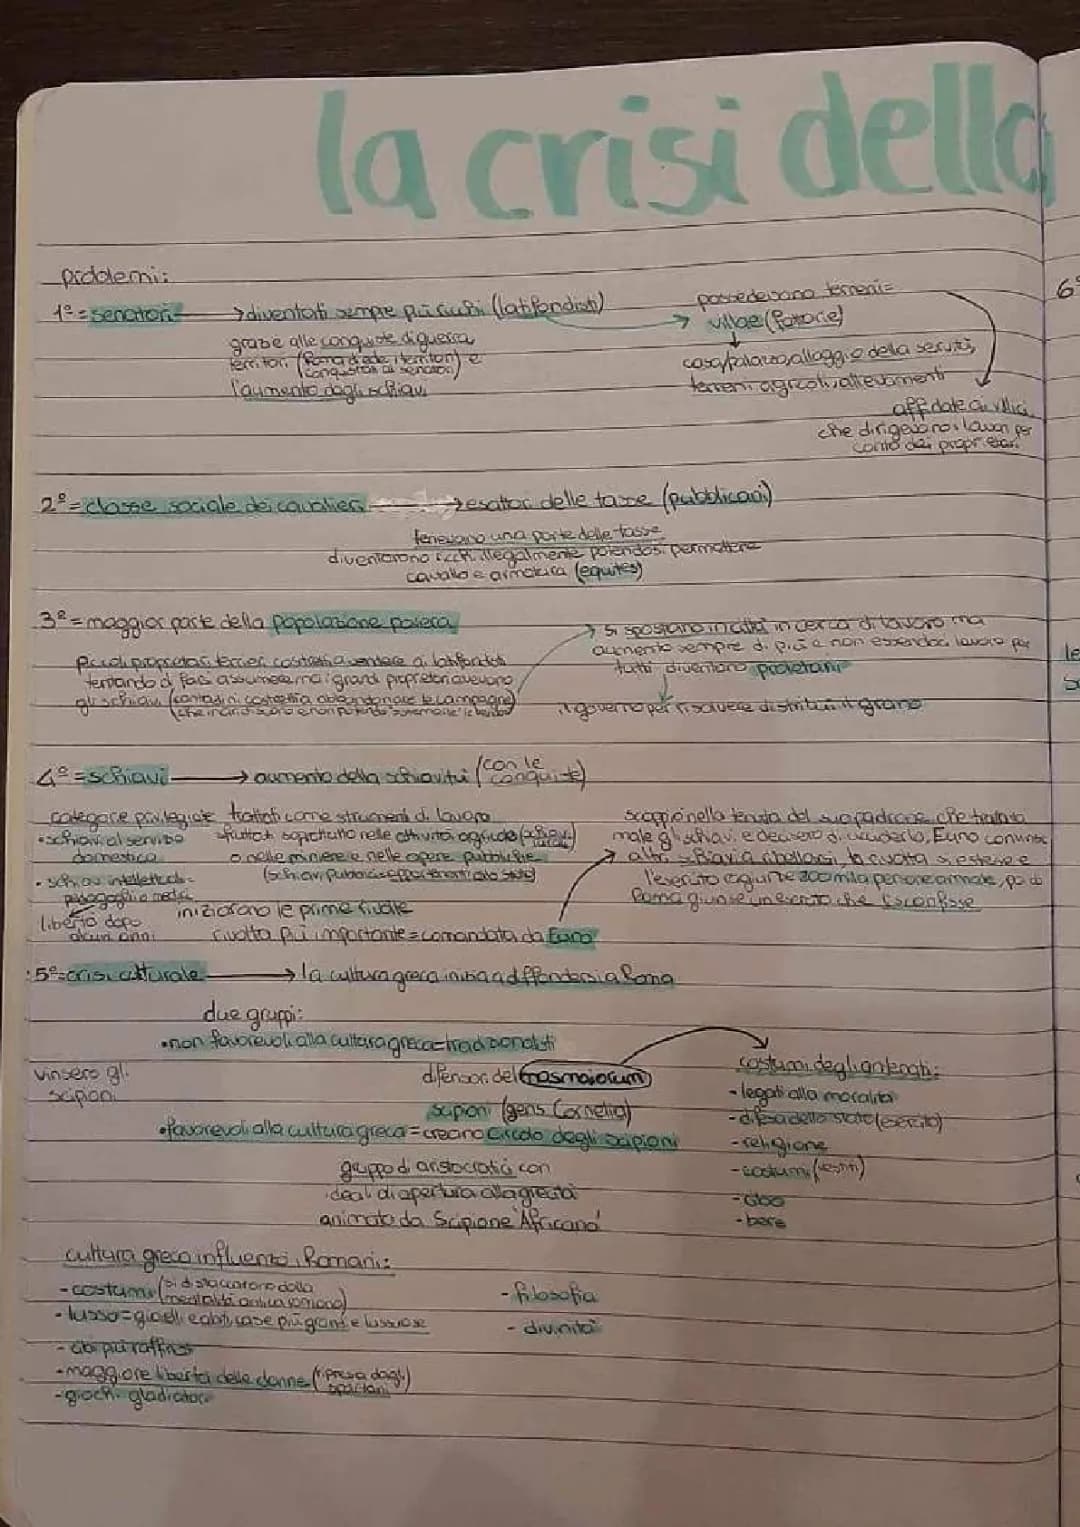 la crisi della
problemi:
1º = senatori → diventati sempre più ricchi (latifondisti)
grazie alle conquiste di guerra
territori (Roma diede i territori conquistati ai senatori) e
l'aumento degli schiavi
possedevano terreni =
villae (fattorie)
casa/palazzo, alloggio della servitù,
terreni agricoli, allevamenti
affidate ai villici
che dirigevano i lavori per
conto dei proprietari
6º
2º = classe sociale dei cavalieri → esattori delle tasse (pubblicani)
tenevano una parte delle tasse
diventarono ricchi illegalmente potendosi permettere
cavallo e armatura (equites)
3º = maggior parte della popolazione povera
Piccoli proprietari terrieri costretti a vendere ai latifondisti
tentando di farsi assumere ma i grandi proprietari avevano
gli schiavi (contadini costretti a abbandonare le campagne)
si spostano in città in cerca di lavoro ma
aumentano sempre di più e non essendoci lavoro per
tutti diventano proletari
il governo per risolvere distribuì il grano
4º = schiavi → aumento della schiavitù (con le conquiste)
categorie privilegiate
• schiavi al servizio
domestico
• schiavi intellettuali =
pedagoghi o medici
libertà dopo
alcuni anni
trattati come strumenti di lavoro
sfruttati soprattutto nelle attività agricole
o nelle miniere e nelle opere pubbliche
(schiavi pubblici = appartenenti allo stato)
iniziarono le prime rivolte
rivolta più importante = comandata da Euno
scoppiò nella tenuta del suo padrone che trattava
male gli schiavi e decisero di ucciderlo, Euno convinse
altri schiavi a ribellarsi, la rivolta si estese e
l'esercito raggiunse 200 mila persone armate, poi da
Roma giunse un esercito che li sconfisse
5º = crisi culturale → la cultura greca inizia a diffondersi a Roma
due gruppi:
• non favorevoli alla cultura greca = tradizionalisti
difensori del mos maiorum
vinsero gli
scipioni
scipioni (gens Cornelia)
• favorevoli alla cultura greca = creano Circolo degli Scipioni
gruppo di aristocratici con
ideali di apertura alla grecità
animato da Scipione "Africano"
costumi degli antenati:
- legati alla moralità
- difesa dello stato (esercito)
- religione
- costumi (vestiti)
- cibo
- bere
cultura greca influenzò i Romani:
- costumi (si distaccarono dalla mentalità antica romana)
- lusso = gioielli e abiti, case più grandi e lussuose
- cibi più raffinati
- maggiore libertà delle donne (ripresa dagli spartani)
- giochi gladiatori
- filosofia
- divinità